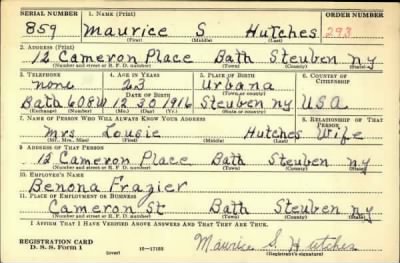 SERIAL NUMBER 1. NAME (Print) ORDER NUMBER
859 Maurice S Hutches 293
(First) (Middle) (Last)
2. ADDRESS (Print)
12 Cameron Place Bath Steuben NY
(Number and street or R. F. D. number) (Town) (County) (State)
3. TELEPHONE 4. AGE IN YEARS 5. PLACE OF BIRTH 6. COUNTRY OF CITIZENSHIP
none 23 Urbana
DATE OF BIRTH (Town or county)
Bath 608W 12 30 1916 Steuben NY USA
(Exchange) (Number) (Mo.) (Day) (Yr.) (State or country)
7. NAME OF PERSON WHO WILL ALWAYS KNOW YOUR ADDRESS 8. RELATIONSHIP OF THAT PERSON
Mrs Lousie Hutches Wife
(Mr., Mrs., Miss) (First) (Middle) (Last)
9. ADDRESS OF THAT PERSON
12 Cameron Place Bath Steuben NY
(Number and street or R. F. D. number) (Town) (County) (State)
10. EMPLOYER'S NAME
Benona Frazier
11. PLACE OF EMPLOYMENT OR BUSINESS
Cameron St Bath Steuben NY
(Number and street or R. F. D. number) (Town) (County) (State)
I AFFIRM THAT I HAVE VERIFIED ABOVE ANSWERS AND THAT THEY ARE TRUE.
REGISTRATION CARD
D. S. S. Form 1 (over) 16—17105 Maurice S. Hutches
(Registrant's signature)